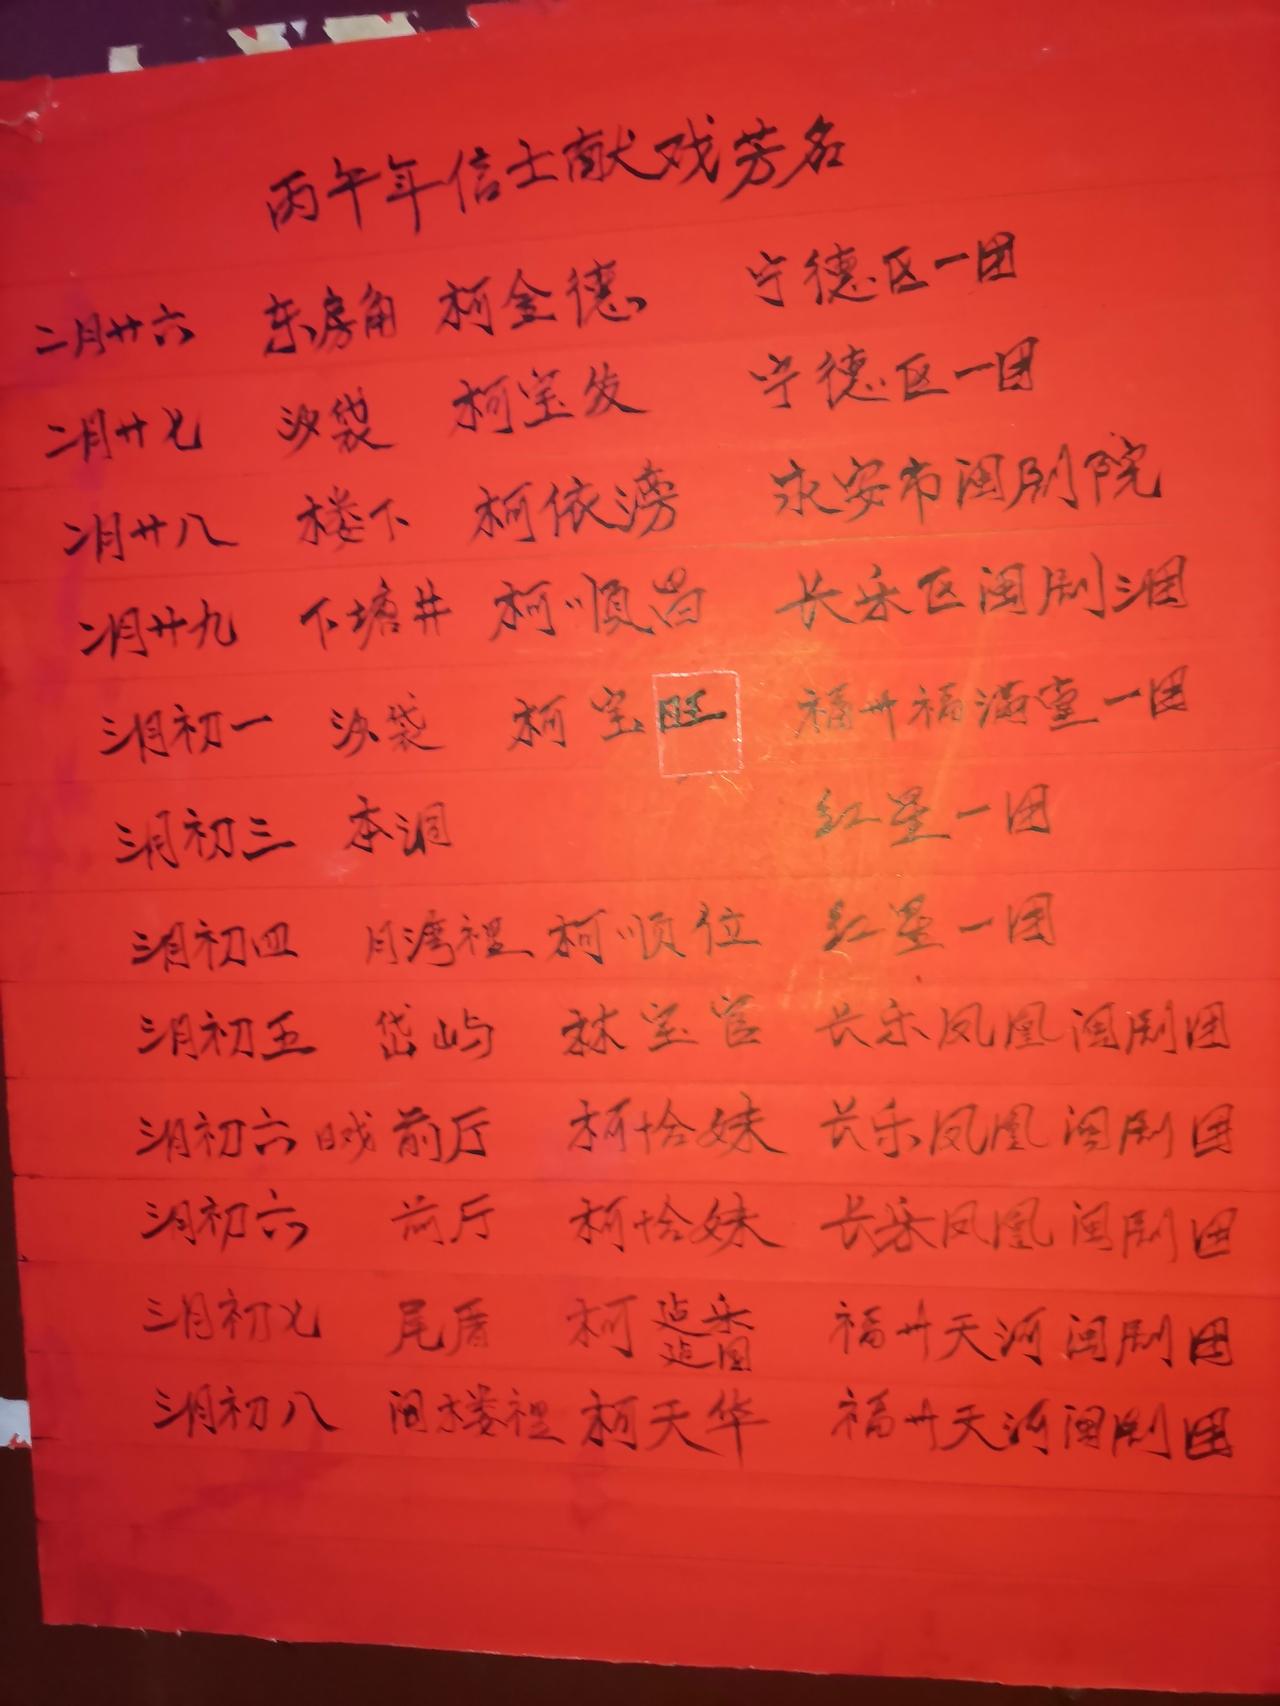 丙午年信士献戏芳名
二月廿六 东房角 柯金德 宁德区一团
二月廿七 沙袋 柯宝发 宁德区一团
二月廿八 楼下 柯依湾 永安市闽剧院
二月廿九 下塘井 柯顺昌 长乐区闽剧三团
三月初一 沙袋 柯宝旺 福州福满堂一团
三月初三 本洞 红星一团
三月初四 月湾裡 柯顺位 红星一团
三月初五 岱屿 林宝官 长乐凤凰闽剧团
三月初六 日戏 前厅 柯恰妹 长乐凤凰闽剧团
三月初六 前厅 柯恰妹 长乐凤凰闽剧团
三月初七 尾厝 柯 福州天河闽剧团
三月初八 闽楼裡 柯天华 福州天河闽剧团